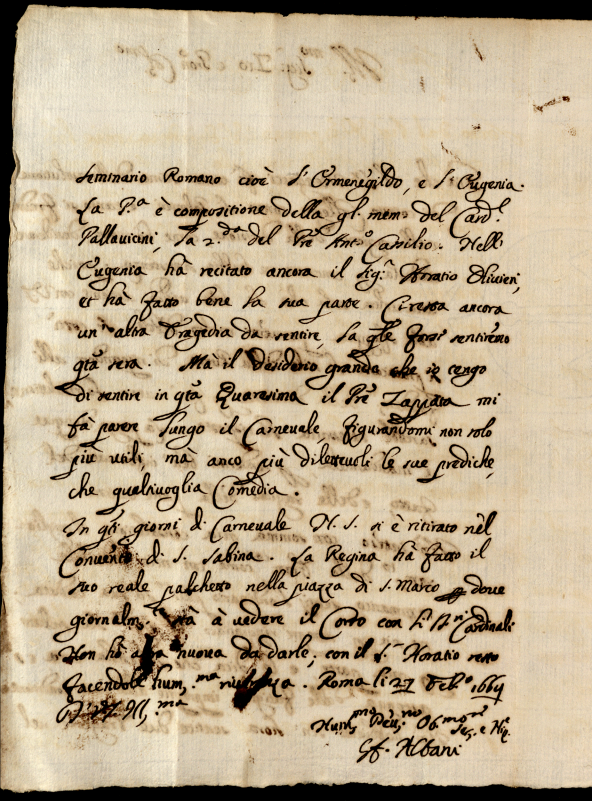 Seminario Romano cioè S. Ormenegildo, e S. Eugenia.
La P.ª è compositione della gl. mem. del Card.l
Pallavicini, la 2.da del Pre Ant.o Casilio. Nell'
Eugenia hà recitato ancora il sig.r Horatio Olivieri,
et hà fatto bene la sua parte. Ci resta ancora
un'altra Tragedia da sentire, la qle forsi sentiremo
qta sera. Mà il desiderio grande che io tengo
di sentire in qta Quaresima il Pre Zappata mi
fà parere lungo il Carnevale, figurandomi non solo
più utili, mà anco più dilettevoli le sue prediche,
che qualsivoglia Comedia.
In qti giorni di Carnevale N. S. si è ritirato nel
Convento di S. Sabina. La Regina hà fatto il
suo reale palchetto nella piazza di S. Marco dove
giornalm.te và à vedere il Corso con li Sri Cardinali
Non hò altra nuova da darle, con il S.r Horatio resto
facendole hum.ma riverenza. Roma li 27 Feb.o 1664
Di V. S. Ill.ma
Hum.mo Dev.mo Ob.mo Ser. e Nip.
Gf. Albani